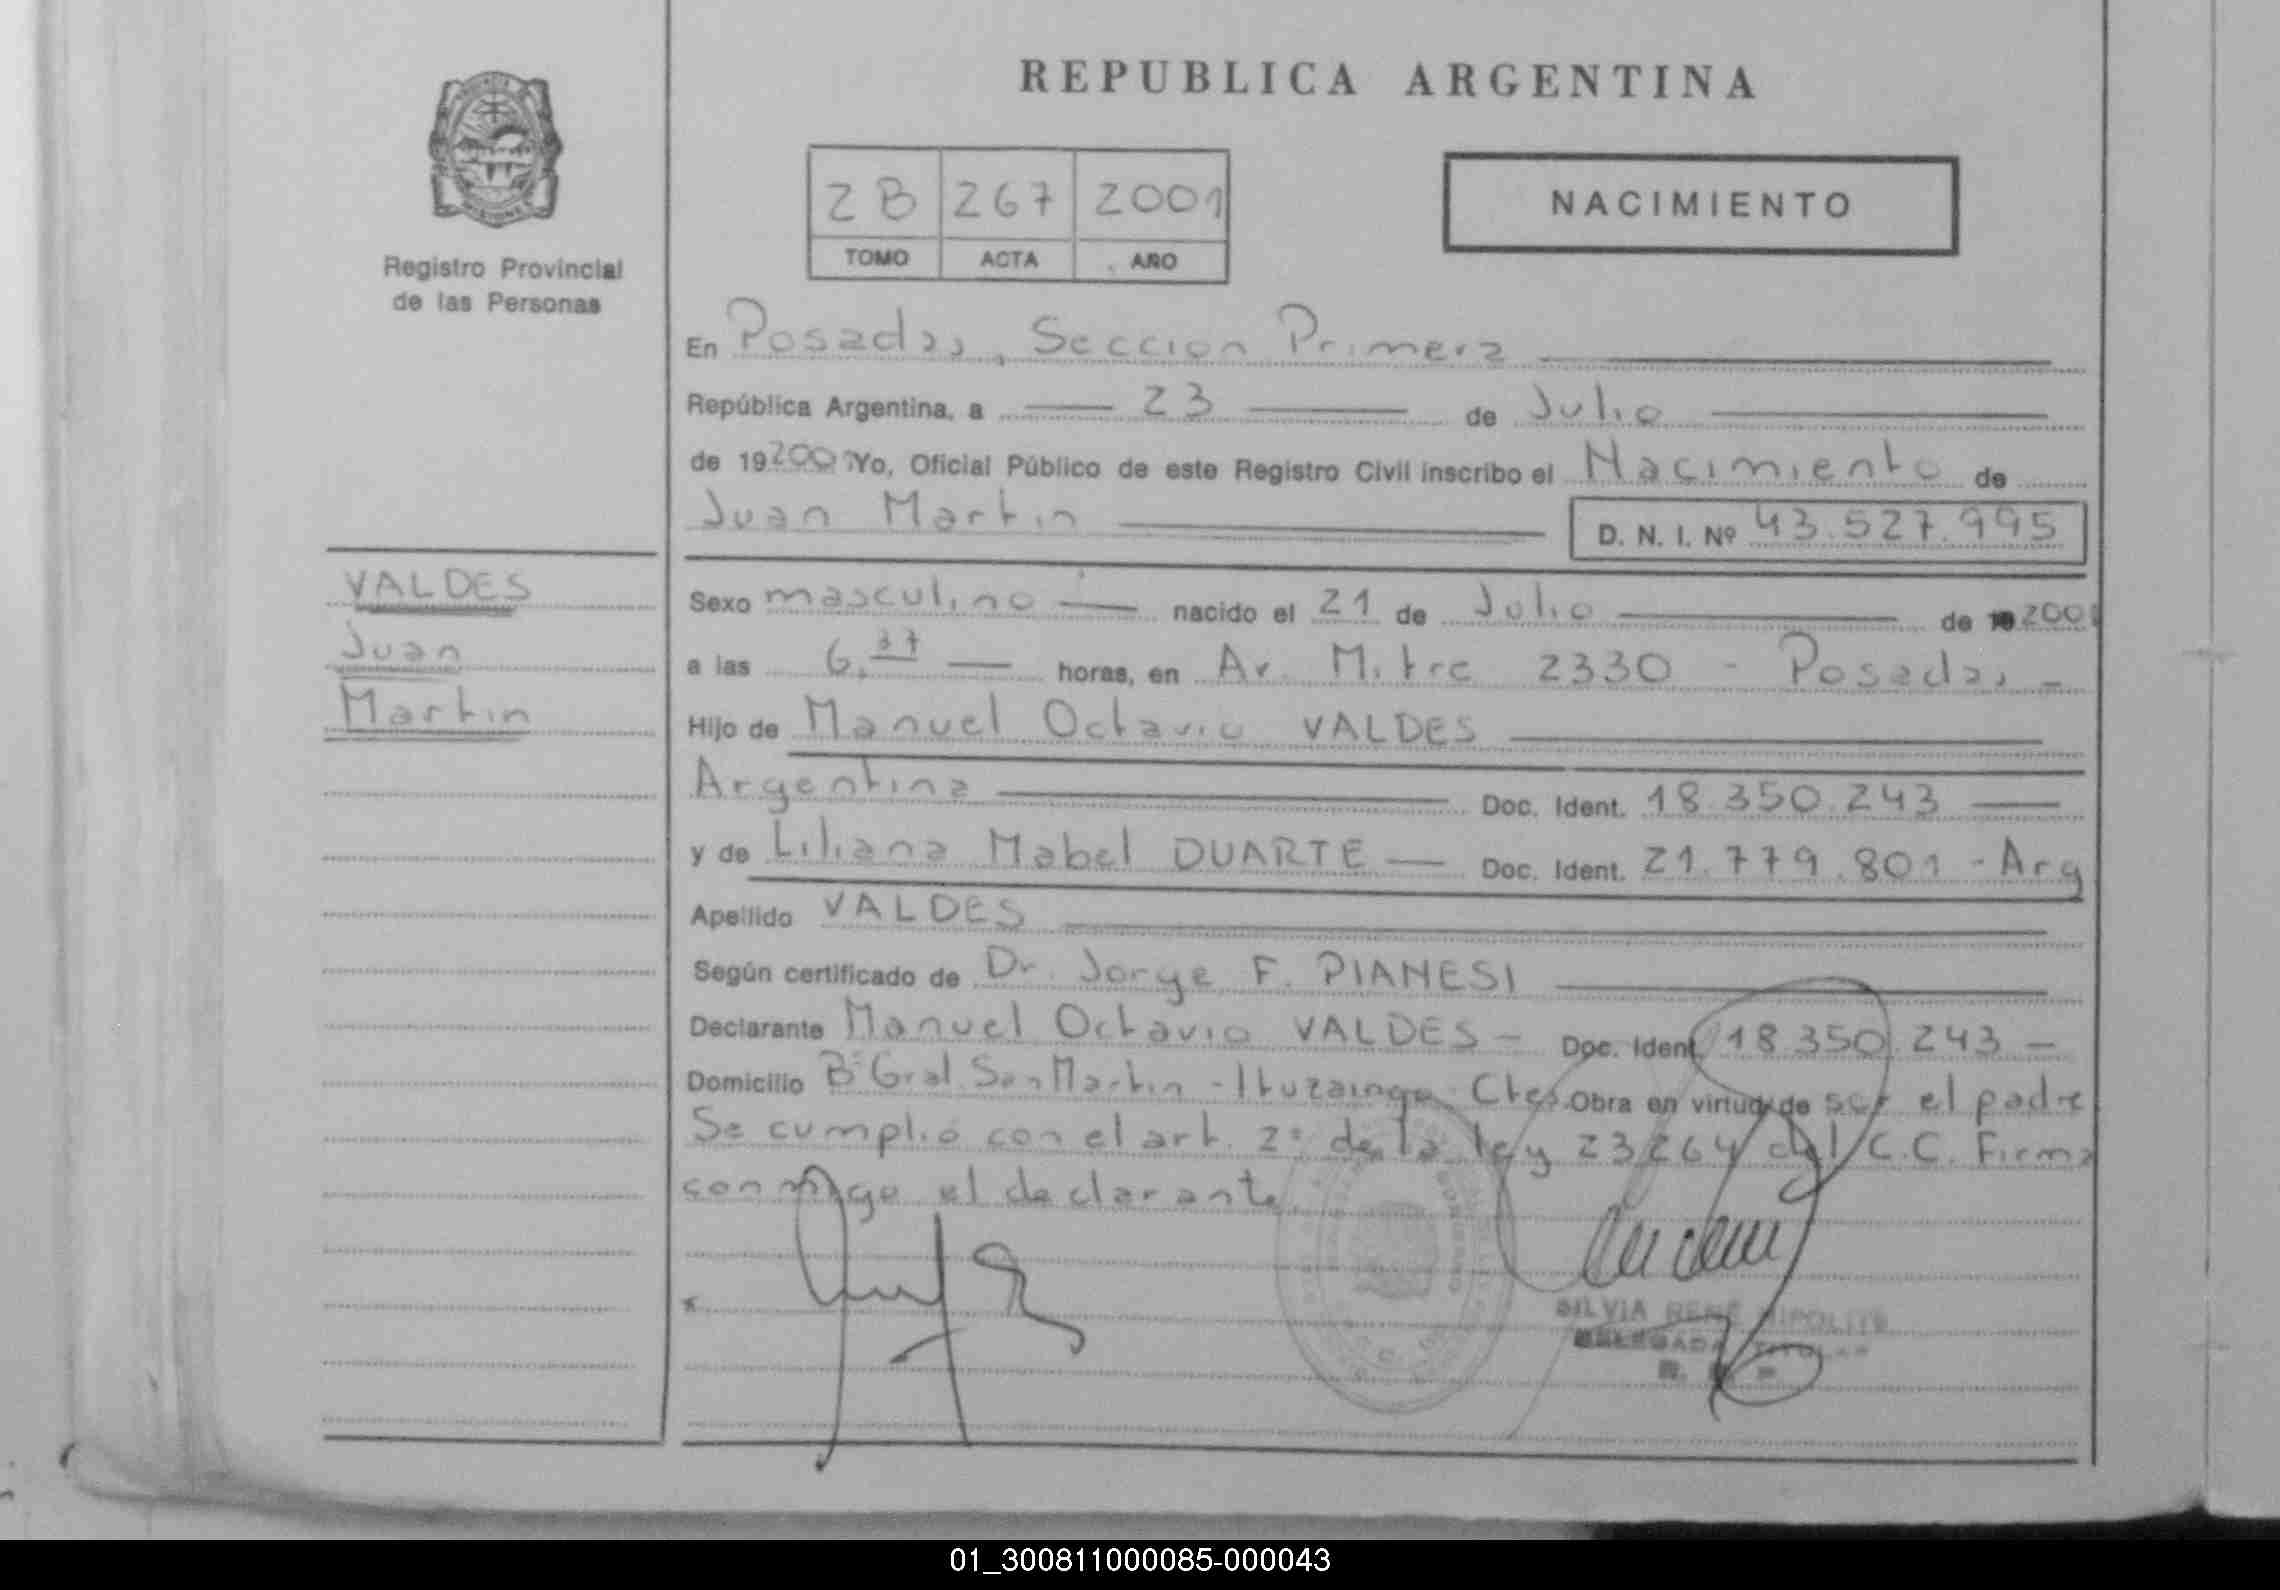 REPUBLICA ARGENTINA
2B 267 2001
TOMO ACTA AÑO
NACIMIENTO
Registro Provincial
de las Personas
En Posadas, Seccion Primera
República Argentina, a 23 de Julio
de 19 2001 Yo, Oficial Público de este Registro Civil inscribo el Nacimiento de
Juan Martin D. N. I. Nº 43.527.995
VALDES
Juan
Martin
Sexo masculino nacido el 21 de Julio de 19 2001
a las 6,37 horas, en Av. Mitre 2330 - Posadas -
Hijo de Manuel Octavio VALDES
Argentina Doc. Ident. 18.350.243
y de Liliana Mabel DUARTE Doc. Ident. 21.779.801 - Arg
Apellido VALDES
Según certificado de Dr. Jorge F. PIANESI
Declarante Manuel Octavio VALDES - Doc. Ident. 18.350.243 -
Domicilio Bº Gral. San Martin - Ituzaingo - Ctes. Obra en virtud de ser el padre
Se cumplio con el art. 2º de la ley 23264 del C.C. Firma
conmigo el declarante.
SILVIA RENÉ HIPOLITE
DELEGADA TITULAR
01_300811000085-000043